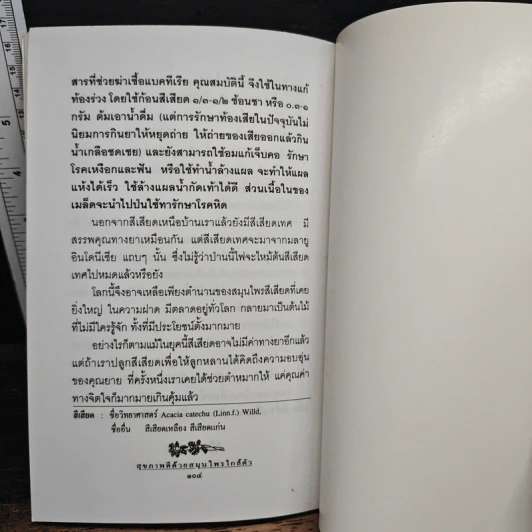 สารที่ช่วยฆ่าเชื้อแบคทีเรีย คุณสมบัตินี้ จึงใช้ในทางแก้
ท้องร่วง โดยใช้ก้อนสีเสียด ๑/๓-๑/๒ ช้อนชา หรือ ๐.๓-๑
กรัม ต้มเอาน้ำดื่ม (แต่การรักษาท้องเสียในปัจจุบันไม่
นิยมการกินยาให้หยุดถ่าย ให้ถ่ายของเสียออกแล้วกิน
น้ำเกลือชดเชย) และยังสามารถใช้อมแก้เจ็บคอ รักษา
โรคเหงือกและฟัน หรือใช้ทำน้ำล้างแผล จะทำให้แผล
แห้งได้เร็ว ใช้ล้างแผลน้ำกัดเท้าได้ดี ส่วนเนื้อในของ
เมล็ดจะนำไปป่นใช้ทารักษาโรคหิด
นอกจากสีเสียดเหนือบ้านเราแล้วยังมีสีเสียดเทศ มี
สรรพคุณทางยาเหมือนกัน แต่สีเสียดเทศจะมาจากมลายู
อินโดนีเซีย แถบๆ นั้น ซึ่งไม่รู้ว่าป่านนี้ไฟจะไหม้ต้นสีเสียด
เทศไปหมดแล้วหรือยัง
โลกนี้จึงอาจเหลือเพียงตำนานของสมุนไพรสีเสียดที่เคย
ยิ่งใหญ่ ในความฝาด มีตลาดอยู่ทั่วโลก กลายมาเป็นต้นไม้
ที่ไม่มีใครรู้จัก ทั้งที่มีประโยชน์ตั้งมากมาย
อย่างไรก็ตามแม้ในยุคนี้สีเสียดอาจไม่มีค่าทางยาอีกแล้ว
แต่ถ้าเราปลูกสีเสียดเพื่อให้ลูกหลานได้คิดถึงความอบอุ่น
ของคุณยาย ที่ครั้งหนึ่งเราเคยได้ช่วยตำหมากให้ แค่คุณค่า
ทางจิตใจก็มากมายเกินคุ้มแล้ว
สีเสียด : ชื่อวิทยาศาสตร์ Acacia catechu (Linn.f.) Willd,
ชื่ออื่น สีเสียดเหลือง สีเสียดแก่น
สุขภาพดีด้วยสมุนไพรใกล้ตัว
๑๐๔
17
16
15
14